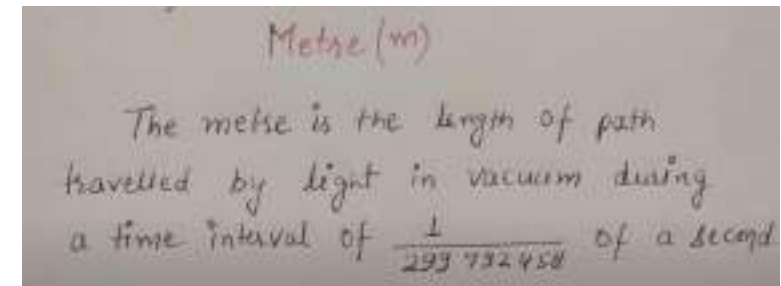 Metre (m)
The metre is the length of path
travelled by light in vacuum during
a time interval of 1/299 792 458 of a second